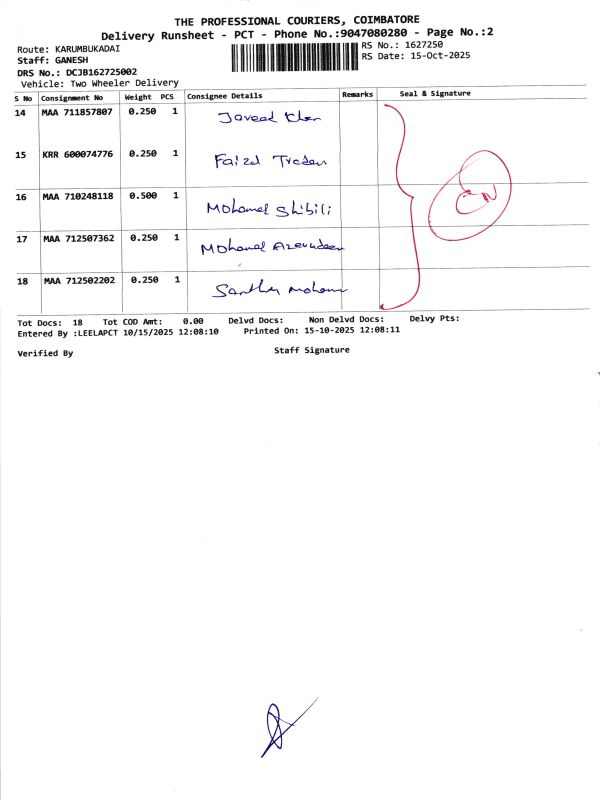 THE PROFESSIONAL COURIERS, COIMBATORE
Delivery Runsheet - PCT - Phone No.:9047080280 - Page No.:2
Route: KARUMBUKADAI
RS No.: 1627250
Staff: GANESH
RS Date: 15-Oct-2025
DRS No.: DCJB162725002
Vehicle: Two Wheeler Delivery
S No Consignment No Weight PCS Consignee Details Remarks Seal & Signature
14 MAA 711857807 0.250 1 Javeed Khan
15 KRR 600074776 0.250 1 Faizal Traders
16 MAA 710248118 0.500 1 Mohamed Shibili
17 MAA 712507362 0.250 1 Mohamed
18 MAA 712502202 0.250 1
Tot Docs: 18 Tot COD Amt: 0.00 Delvd Docs: Non Delvd Docs: Delvy Pts:
Entered By :LEELAPCT 10/15/2025 12:08:10 Printed On: 15-10-2025 12:08:11
Verified By Staff Signature